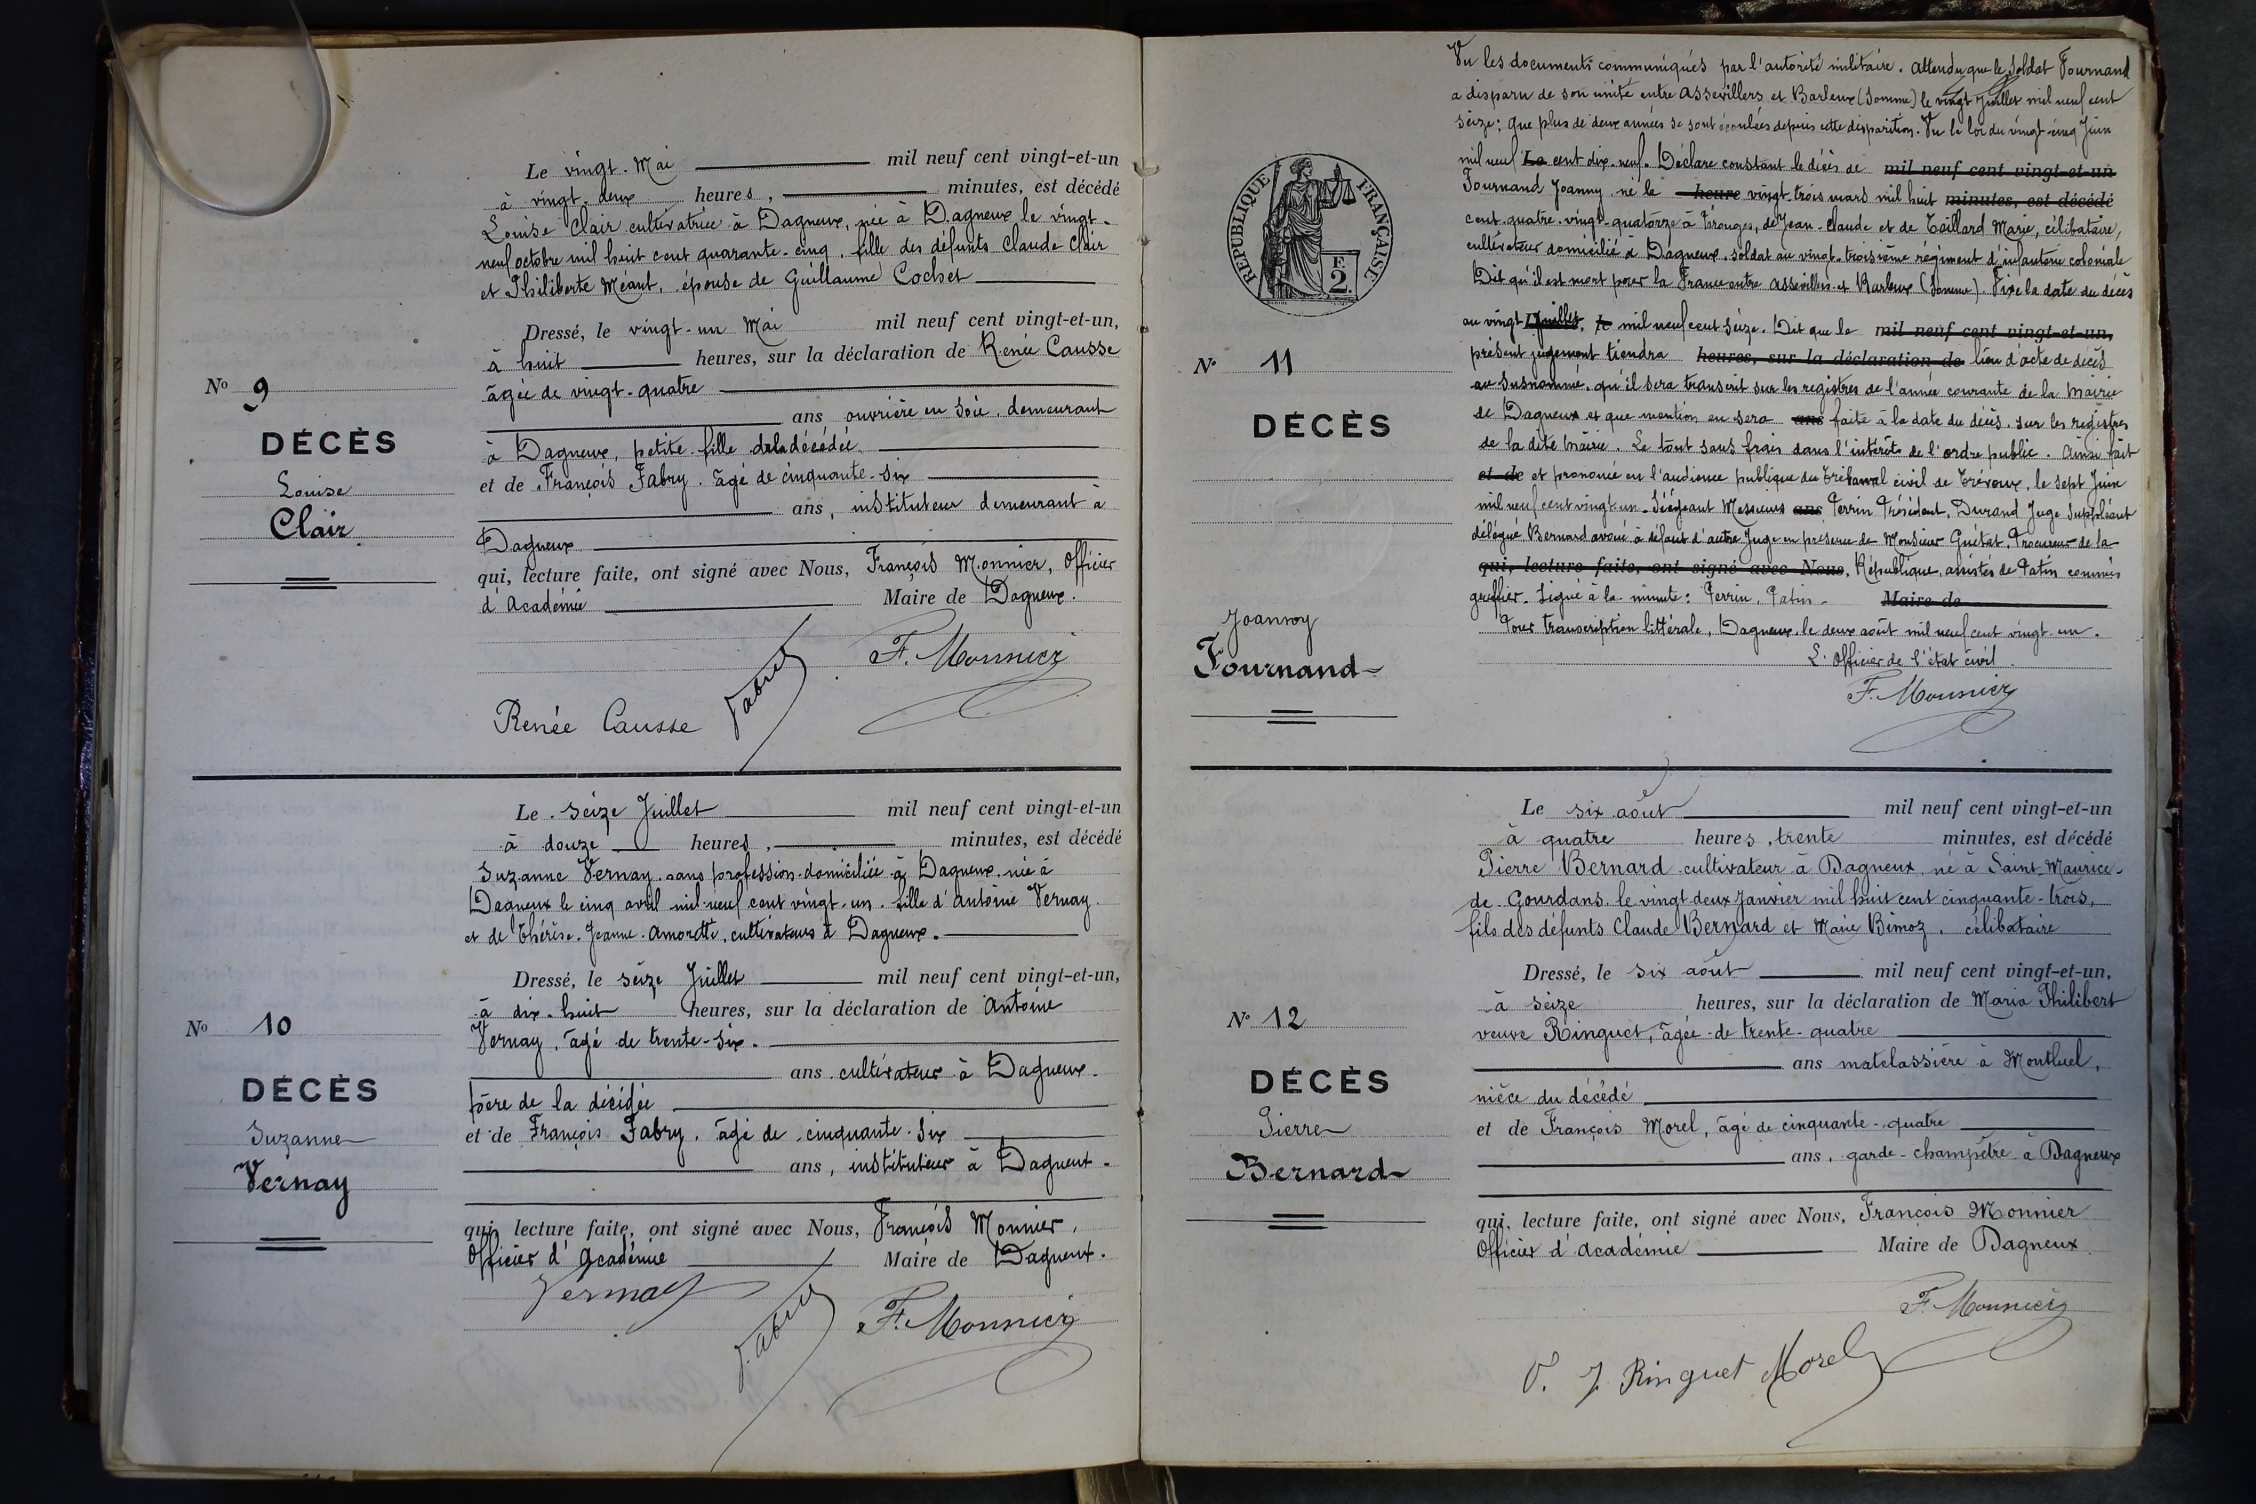 Le vingt. Mai mil neuf cent vingt-et-un
à vingt. deux heures, minutes, est décédé
Louise Clair cultivatrice à Dagneux, née à Dagneux le vingt-
neuf octobre mil huit cent quarante-cinq, fille des défunts Claude Clair
et Philiberte Méant, épouse de Guillaume Cochet
Dressé, le vingt-un Mai mil neuf cent vingt-et-un,
à huit heures, sur la déclaration de Renée Causse
âgée de vingt-quatre
ans, ouvrière en soie, demeurant
à Dagneux, petite-fille de la décédée.
et de François Fabry, âgé de cinquante-six
ans, instituteur demeurant à
Dagneux
qui, lecture faite, ont signé avec Nous, François Monnier, Officier
d'Académie Maire de Dagneux.
Renée Causse Fabry F. Monnier
No 9
DÉCÈS
Louise
Clair
Le seize Juillet mil neuf cent vingt-et-un
à douze heures, minutes, est décédé
Suzanne Vernay, sans profession, domiciliée à Dagneux, née à
Dagneux le cinq avril mil neuf cent vingt-un, fille d'Antoine Vernay
et de Thérèse-Jeanne Amorette, cultivateurs à Dagneux.
Dressé, le seize Juillet mil neuf cent vingt-et-un,
à dix-huit heures, sur la déclaration de Antoine
Vernay, âgé de trente-six.
ans cultivateur à Dagneux.
père de la décédée
et de François Fabry, âgé de cinquante-six
ans, instituteur à Dagneux.
qui, lecture faite, ont signé avec Nous, François Monnier,
Officier d'Académie Maire de Dagneux.
Vernay F. Fabry F. Monnier
No 10
DÉCÈS
Suzanne
Vernay
RÉPUBLIQUE FRANÇAISE
F
2
Vu les documents communiqués par l'autorité militaire. Attendu que le soldat Fournand
a disparu de son unité entre Assevillers et Barleux (Somme) le vingt Juillet mil neuf cent
seize; que plus de deux années se sont écoulées depuis cette disparition. Vu la loi du vingt-cinq Juin
mil neuf Le cent dix-neuf. Déclare constant le décès de mil neuf cent vingt-et-un
Fournand Joanny né le heure vingt trois mars mil huit minutes, est décédé
cent quatre-vingt-quatorze à Pérouges, de Jean-Claude et de Taillard Marie, célibataire,
cultivateur domicilié à Dagneux, soldat au vingt-troisième régiment d'infanterie coloniale
Dit qu'il est mort pour la France entre Assevillers et Barleux (Somme). Fixe la date du décès
au vingt Juillet, le mil neuf cent seize. Dit que le mil neuf cent vingt-et-un,
présent jugement tiendra heures, sur la déclaration de lieu d'acte de décès
au susnommé, qu'il sera transcrit sur les registres de l'année courante de la mairie
de Dagneux et que mention en sera ans faite à la date du décès, sur les registres
de la dite mairie. Le tout sans frais dans l'intérêt de l'ordre public. Ainsi fait
et de et prononcé en l'audience publique du tribunal civil de Trévoux, le sept Juin
mil neuf cent vingt-un. Siégeant Messieurs ans Perrin Président, Durand Juge Suppléant
délégué Bernard avoué à défaut d'autre Juge en présence de Monsieur Guétat, Procureur de la
qui, lecture faite, ont signé avec Nous, République, assistés de Patin commis
greffier. Signé à la minute: Perrin, Patin. Maire de
Pour transcription littérale, Dagneux, le deux août mil neuf cent vingt-un.
L'Officier de l'état civil.
F. Monnier
No 11
DÉCÈS
Joanny
Fournand
Le six août mil neuf cent vingt-et-un
à quatre heures, trente minutes, est décédé
Pierre Bernard cultivateur à Dagneux, né à Saint-Maurice-
de-Gourdans, le vingt-deux Janvier mil huit cent cinquante-trois,
fils des défunts Claude Bernard et Marie Bimoz, célibataire
Dressé, le six août mil neuf cent vingt-et-un,
à seize heures, sur la déclaration de Maria Philibert
veuve Ringuet, âgée de trente-quatre
ans matelassière à Montluel,
nièce du décédé
et de François Morel, âgé de cinquante-quatre
ans, garde-champêtre à Dagneux
qui, lecture faite, ont signé avec Nous, François Monnier
Officier d'académie Maire de Dagneux
F. Monnier
V. J. Ringuet Morel
No 12
DÉCÈS
Pierre
Bernard